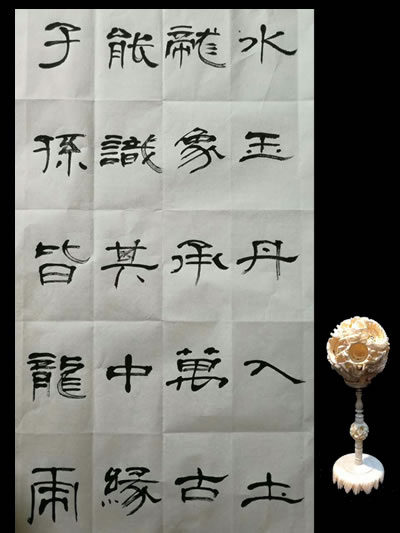 水玉丹入土
龍象承萬古
能識其中緣
子孫皆龍雨